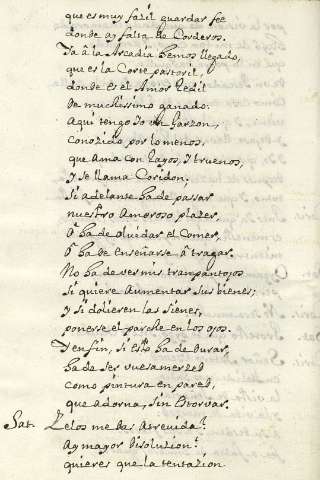 que es muy fazil guardar fee
donde ay falta de Corderos.
Ya â la Arcadia hemos llegado,
que es la Corte pastoril,
donde es el Amor Redil
de muchissimo ganado.
Aqui tengo Yo un Garzon,
conozido por lo menos,
que ama con Rayos, y truenos,
y se llama Coridon,
si adelante ha de passar
nuestro Amoroso plazer,
ô ha de oluidar el Comer,
ô ha de enseñarse â tragar.
No ha de ver mis trampantojos
si quiere aumentar sus bienes;
y si dolieren las sienes,
ponerse el parche en los ojos.
Y en fin, si esto ha de durar,
ha de ser vuesamerzed
como pintura en pared,
que adorna, sin estorvar.
Sat. Zelos me das atrevida?
Ay mayor disoluzion?
quieres que la tentazion